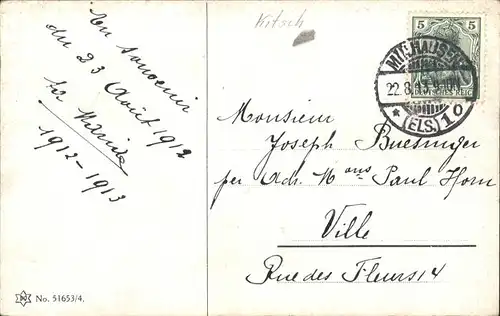 En souvenir
du 23 Août 1912
1912-1913
No. 51653/4.
Kitsch
5 5
DEUTSCHES REICH
MÜLHAUSEN
22.8.13.
* (ELS.) 1 o
Monsieur
Joseph Buesinger
per Adr. Mons Paul Horn
Ville
Rue des Fleurs 14